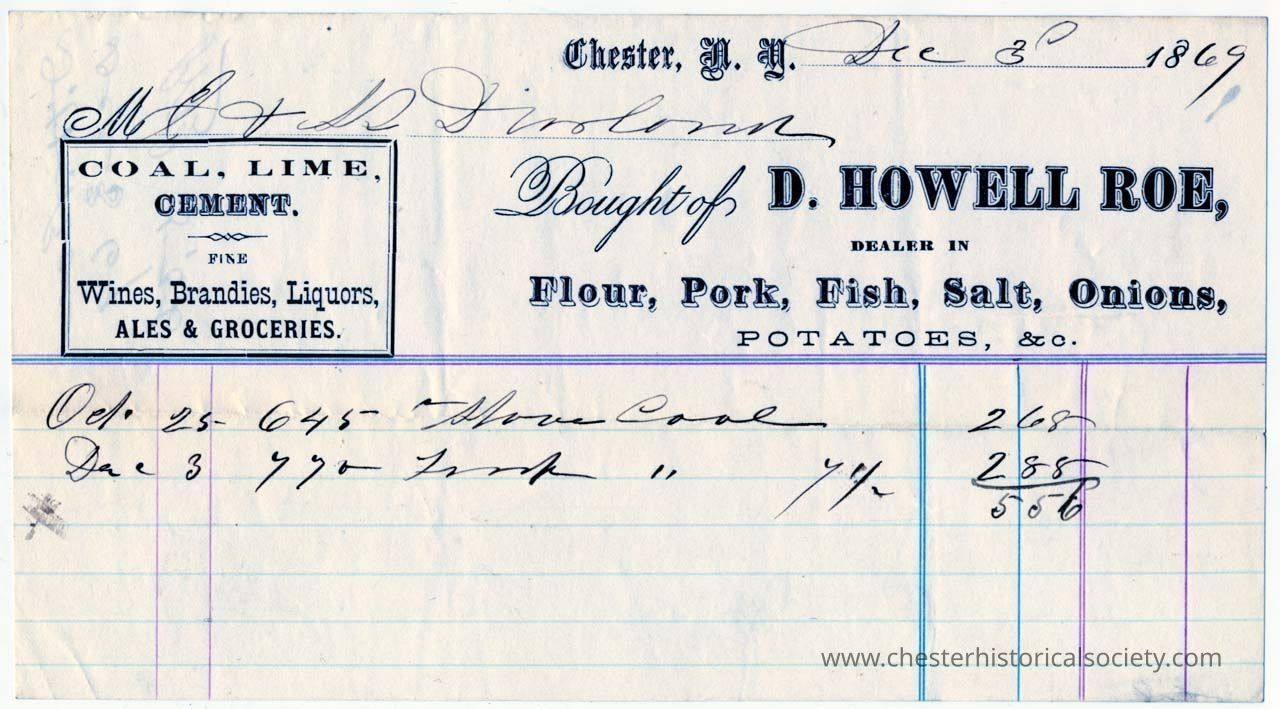 Chester, N. Y. Dec 3d 1869
M & Durland
COAL, LIME,
CEMENT.
FINE
Wines, Brandies, Liquors,
ALES & GROCERIES.
Bought of D. HOWELL ROE,
DEALER IN
Flour, Pork, Fish, Salt, Onions,
POTATOES, &c.
Oct 25 645 Stove Coal 268
Dec 3 770 " 7½ 288
556
www.chesterhistoricalsociety.com